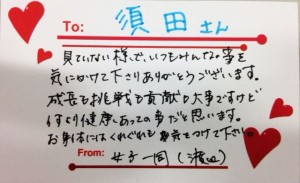 To: 須田さん
見ていない様で、いつもみんなの事を
気にかけて下さりありがとうございます。
成長も挑戦も貢献も大事ですけど
何より健康あっての事だと思います。
お身体にはくれぐれもお気をつけて下さい。
From: 女子一同